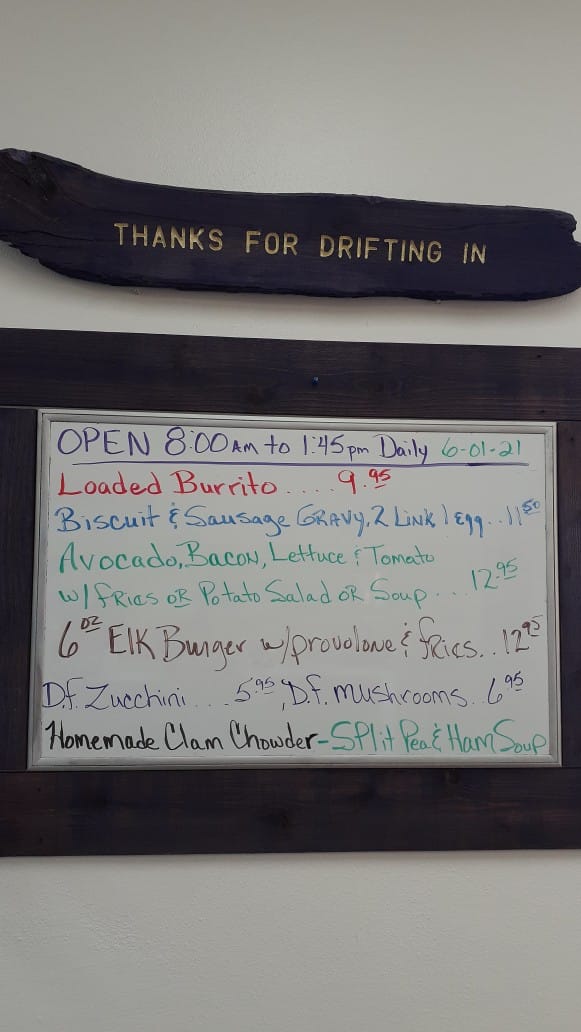 THANKS FOR DRIFTING IN
OPEN 8:00 AM to 1:45 pm Daily 6-01-21
Loaded Burrito .... 9.95
Biscuit & Sausage GRAVY, 2 LINK 1 Egg .. 11 50
Avocado, Bacon, Lettuce & Tomato
w/ fries OR Potato Salad OR Soup ... 12.95
6 oz Elk Burger w/ provolone & fries.. 12 95
D.f. Zucchini ... 5.95, D.f. mushrooms.. 6 95
Homemade Clam Chowder - Split Pea & Ham Soup